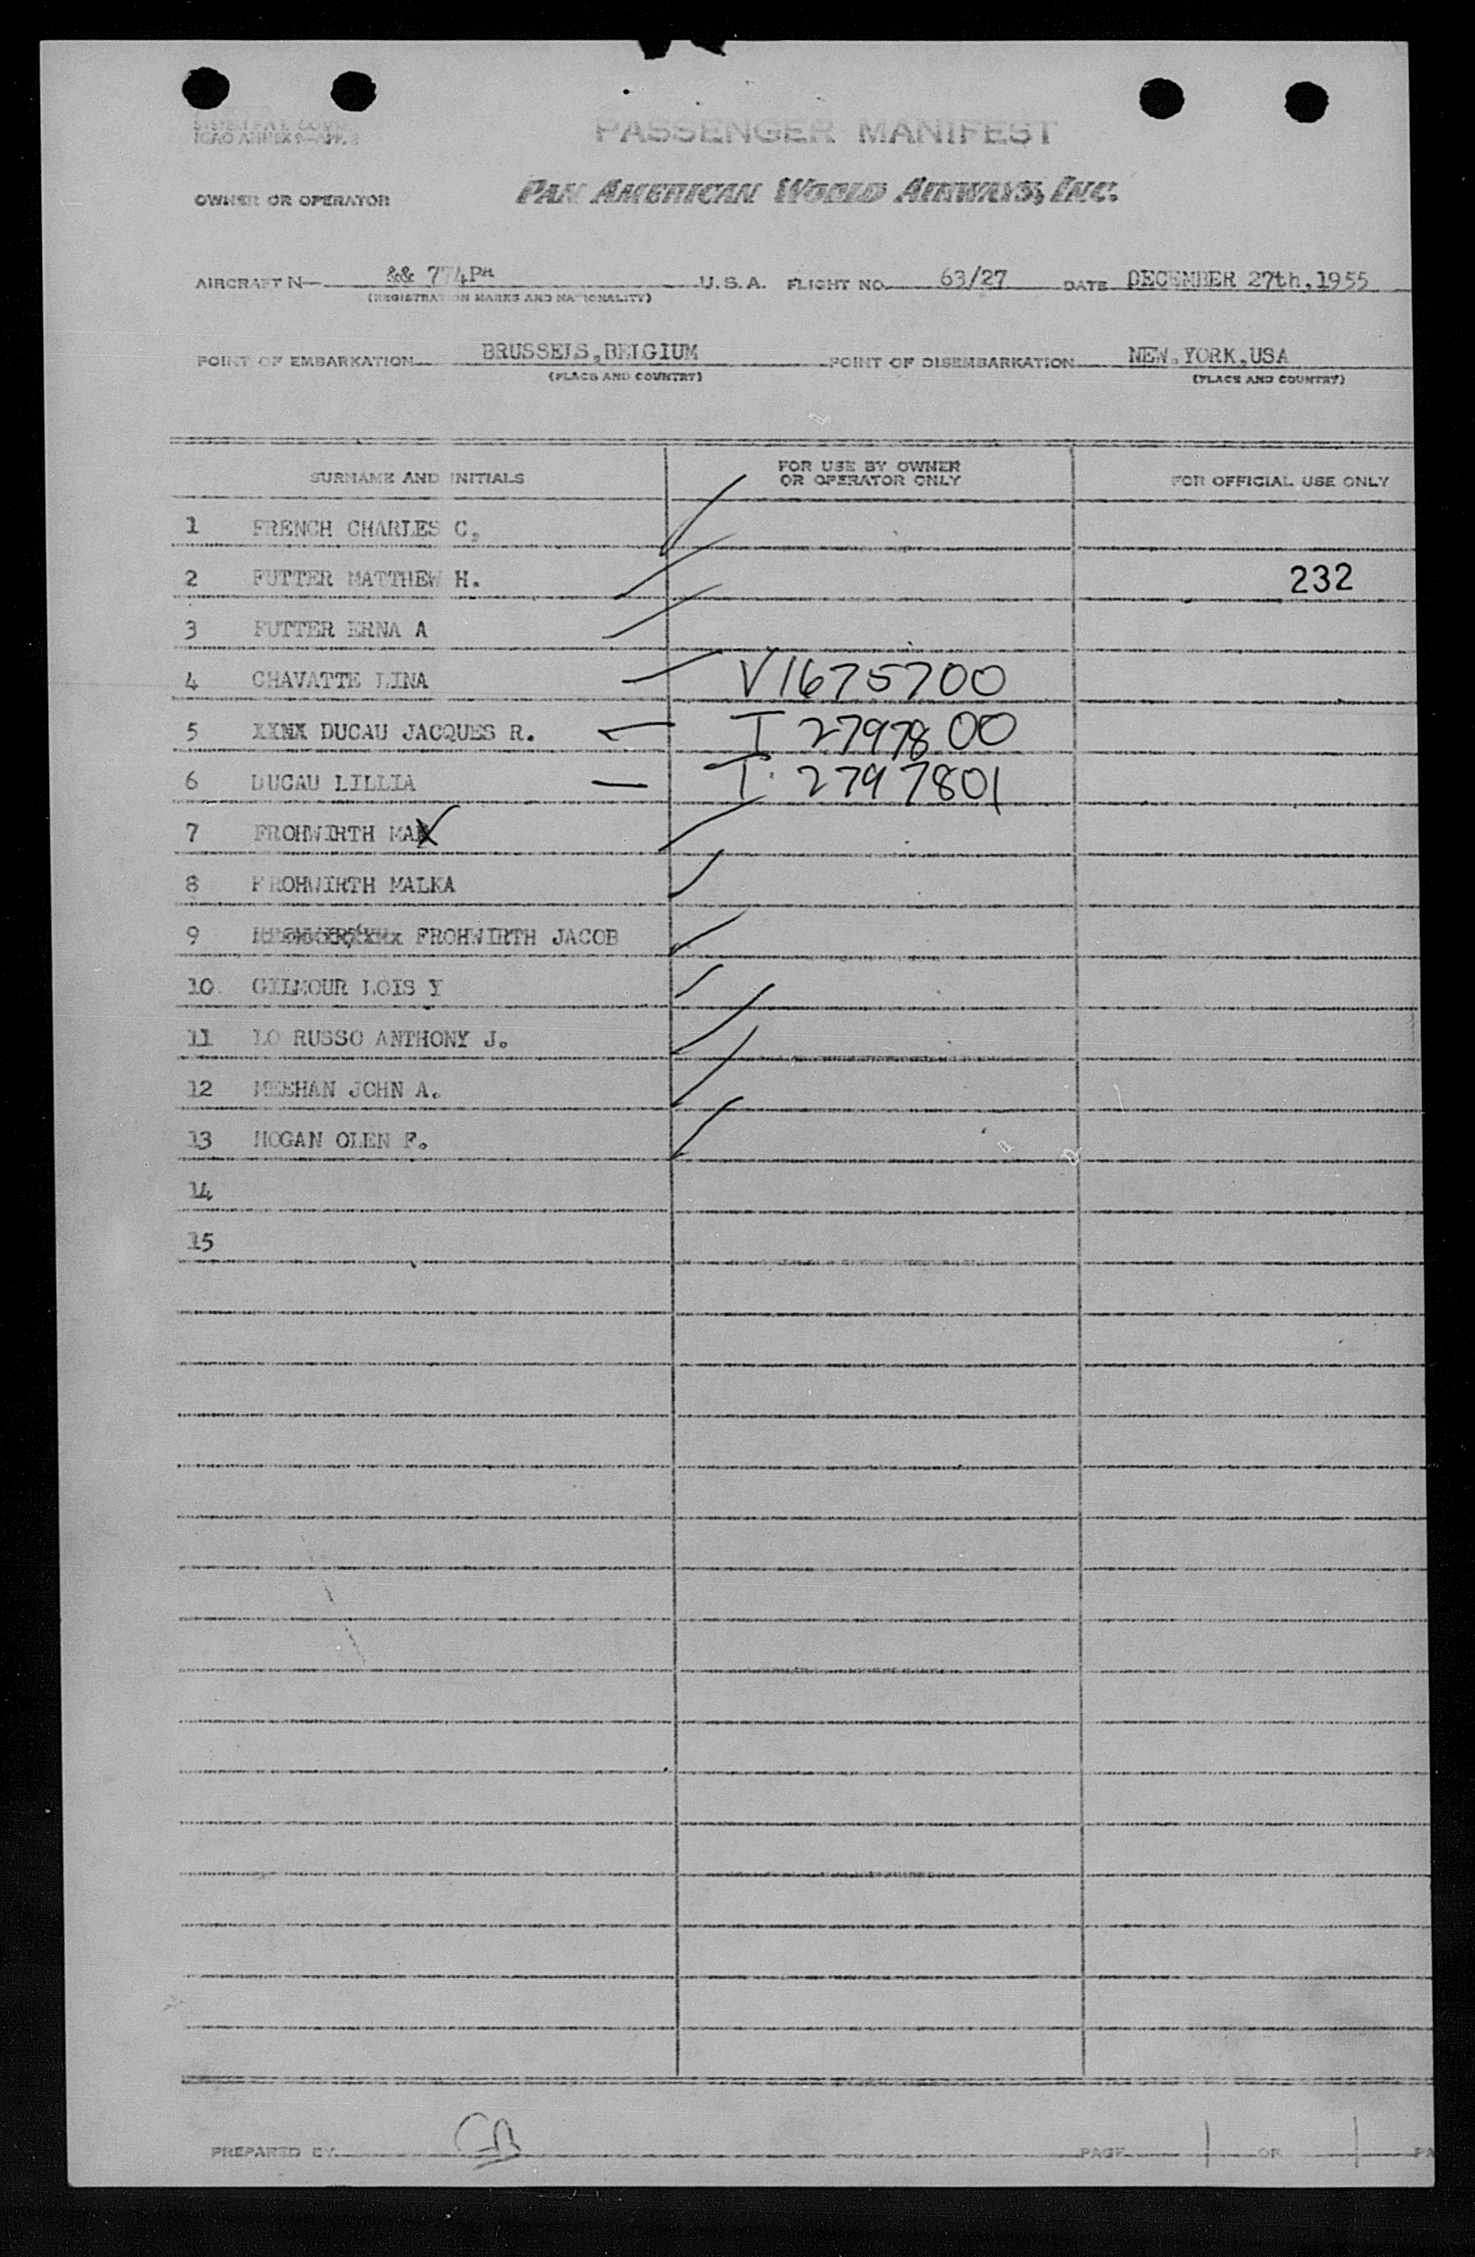 ICAO ANNEX 9—APP. 3
PASSENGER MANIFEST
OWNER OR OPERATOR PAN AMERICAN WORLD AIRWAYS, INC.
AIRCRAFT N— && 774PA U. S. A. FLIGHT NO. 63/27 DATE DECEMBER 27th,1955
(REGISTRATION MARKS AND NATIONALITY)
POINT OF EMBARKATION BRUSSELS,BELGIUM POINT OF DISEMBARKATION NEW.YORK.USA
(PLACE AND COUNTRY) (PLACE AND COUNTRY)
SURNAME AND INITIALS FOR USE BY OWNER OR OPERATOR ONLY FOR OFFICIAL USE ONLY
1 FRENCH CHARLES C.
2 FUTTER MATTHEW H. 232
3 FUTTER ERNA A
4 CHAVATTE LINA V1675700
5 XXNX DUCAU JACQUES R. I 2797800
6 DUCAU LILLIA I 2797801
7 FROHWIRTH MAX
8 FROHWIRTH MALKA
9 FROHWIRTH JACOB
10 GILMOUR LOIS Y
11 LO RUSSO ANTHONY J.
12 MEEHAN JOHN A.
13 HOGAN OLEN F.
14
15
PREPARED BY GB PAGE 1 OF 1 PA